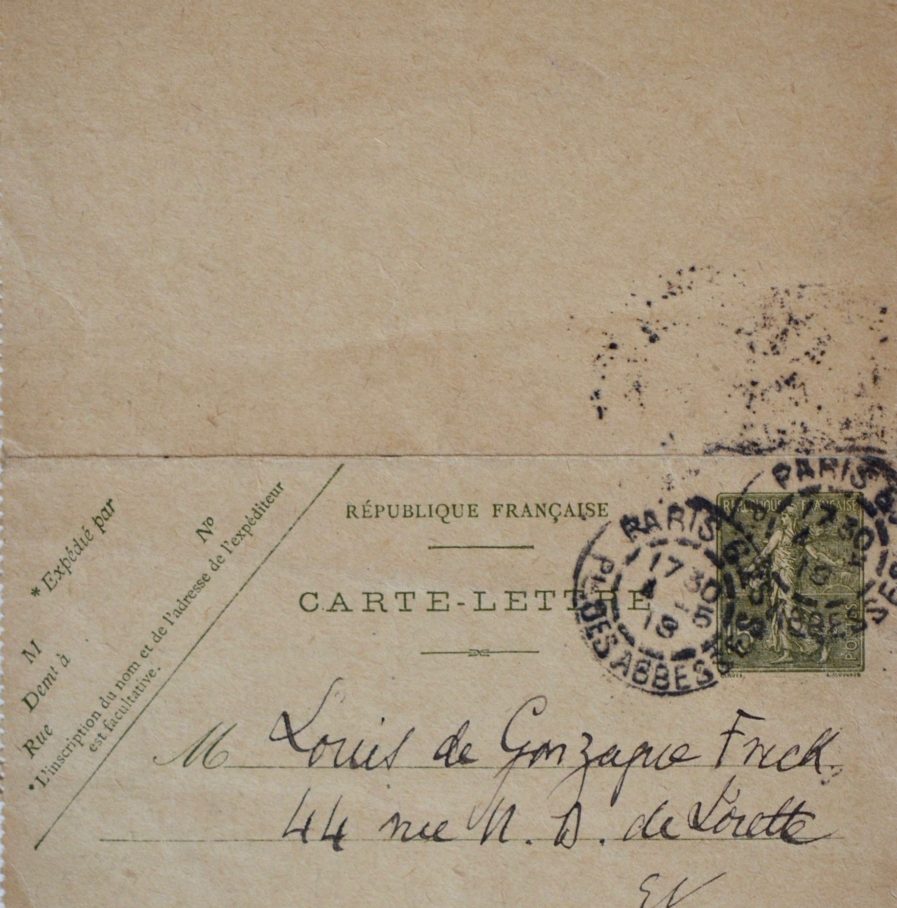 RÉPUBLIQUE FRANÇAISE
CARTE-LETTRE
* Expédié par
Nº
M
Demt à
Rue
*L'inscription du nom et de l'adresse de l'expéditeur
est facultative.
PARIS
17 30
4 - 5
18
PL. DES ABBESSES
PARIS
17 30
RÉPUBLIQUE FRANÇAISE
POSTES
M Louis de Gonzague Frick.
44 rue N. D. de Lorette
EV